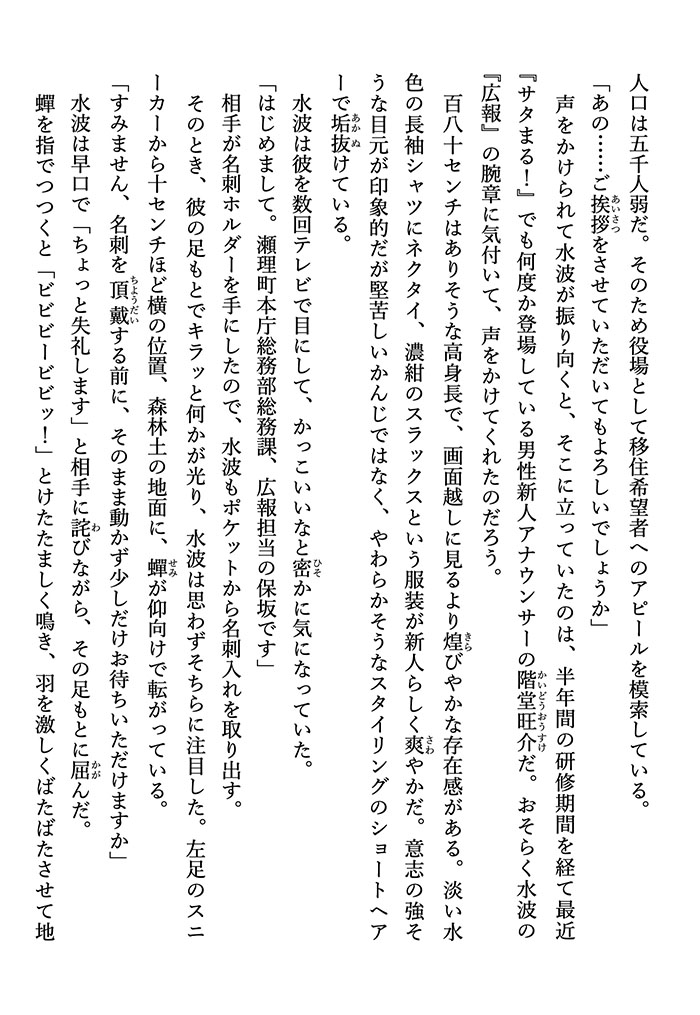 人口は五千人弱だ。そのため役場として移住希望者へのアピールを模索している。
「あの……ご挨拶をさせていただいてもよろしいでしょうか」
声をかけられて水波が振り向くと、そこに立っていたのは、半年間の研修期間を経て最近
『サタまる！』でも何度か登場している男性新人アナウンサーの階堂旺介だ。おそらく水波の
『広報』の腕章に気付いて、声をかけてくれたのだろう。
百八十センチはありそうな高身長で、画面越しに見るより煌びやかな存在感がある。淡い水
色の長袖シャツにネクタイ、濃紺のスラックスという服装が新人らしく爽やかだ。意志の強そ
うな目元が印象的だが堅苦しいかんじではなく、やわらかそうなスタイリングのショートヘア
ーで垢抜けている。
水波は彼を数回テレビで目にして、かっこいいなと密かに気になっていた。
「はじめまして。瀬理町本庁総務部総務課、広報担当の保坂です」
相手が名刺ホルダーを手にしたので、水波もポケットから名刺入れを取り出す。
そのとき、彼の足もとでキラッと何かが光り、水波は思わずそちらに注目した。左足のスニ
ーカーから十センチほど横の位置、森林土の地面に、蟬が仰向けで転がっている。
「すみません、名刺を頂戴する前に、そのまま動かず少しだけお待ちいただけますか」
水波は早口で「ちょっと失礼します」と相手に詫びながら、その足もとに屈んだ。
蟬を指でつつくと「ビビビービビッ！」とけたたましく鳴き、羽を激しくばたばたさせて地